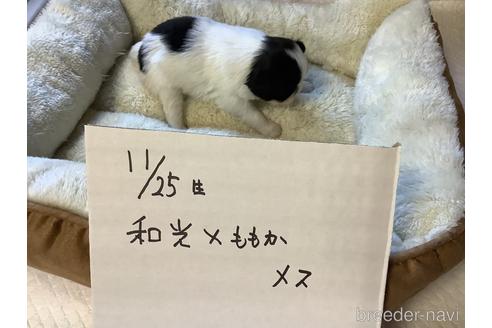 11/25生
和光×ももか
メス
breeder-navi